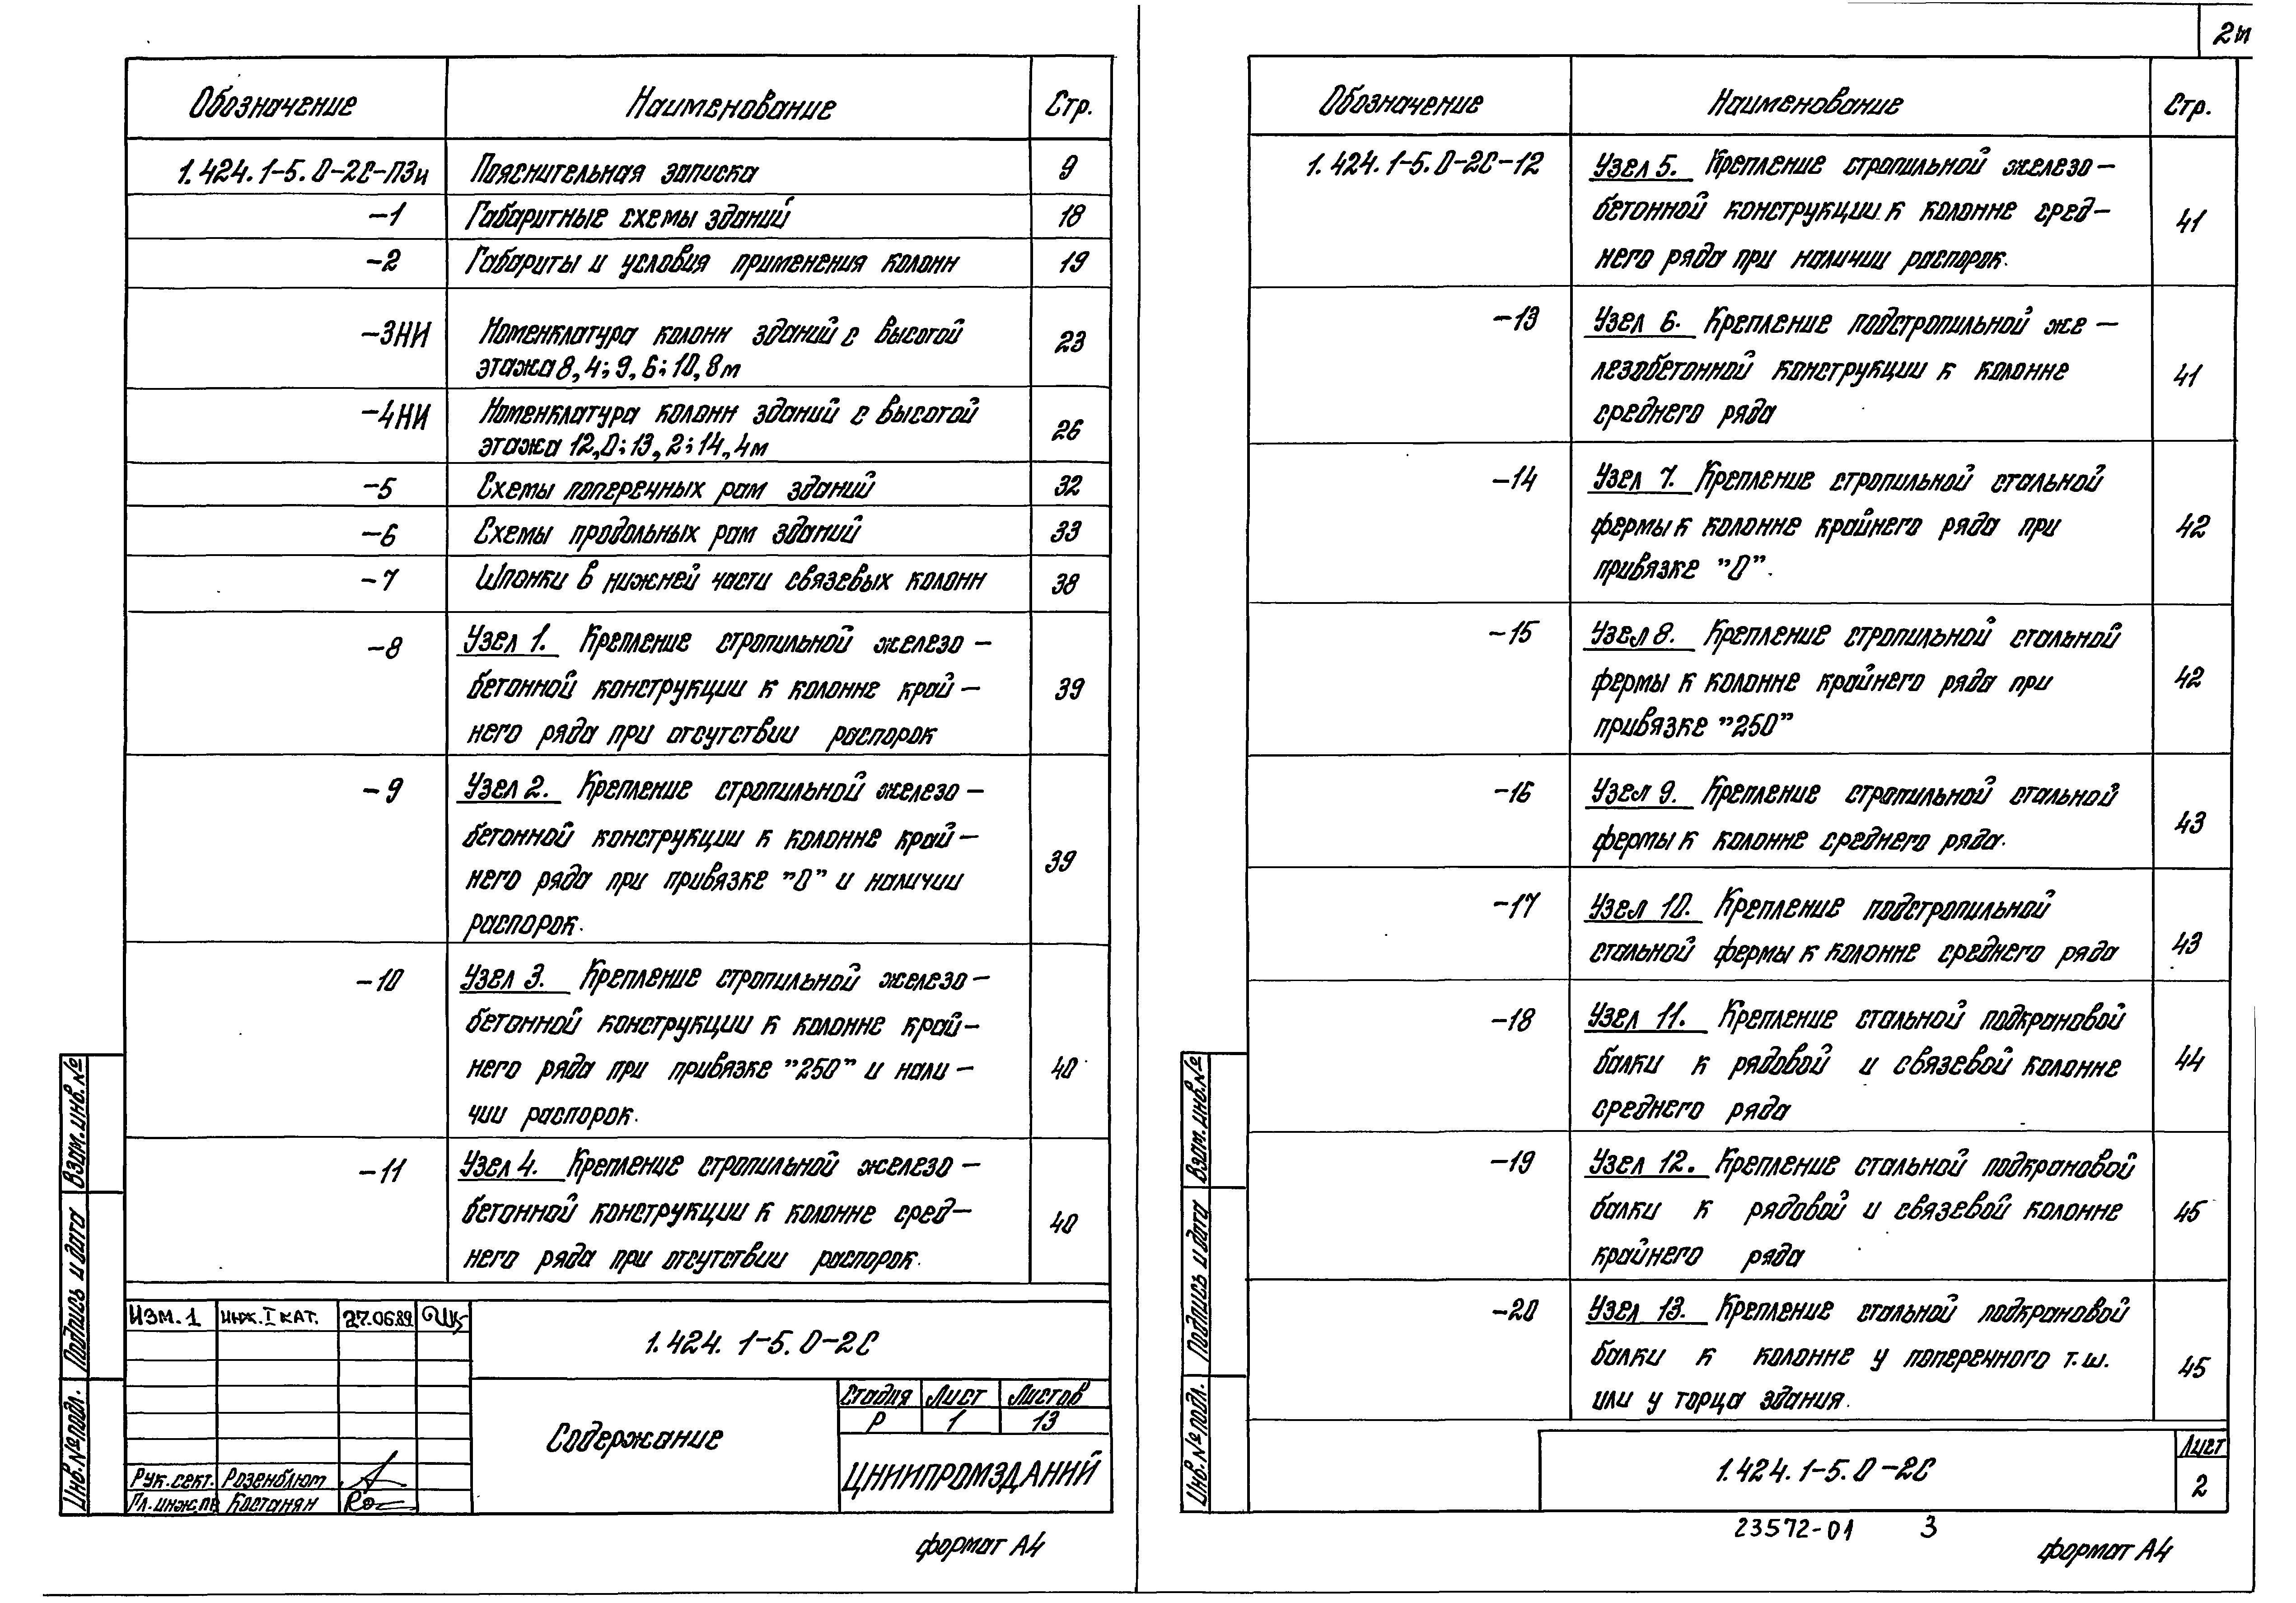 Обозначение Наименование Стр.
1.424.1-5.0-2С-ПЗи Пояснительная записка 9
-1 Габаритные схемы зданий 18
-2 Габариты и условия применения колонн 19
-3НИ Номенклатура колонн зданий с высотой
этажа 8,4; 9,6; 10,8м 23
-4НИ Номенклатура колонн зданий с высотой
этажа 12,0; 13,2; 14,4м 26
-5 Схемы поперечных рам зданий 32
-6 Схемы продольных рам зданий 33
-7 Шпонки в нижней части связевых колонн 38
-8 Узел 1. Крепление стропильной железо-
бетонной конструкции к колонне край- 39
него ряда при отсутствии распорок
-9 Узел 2. Крепление стропильной железо-
бетонной конструкции к колонне край-
него ряда при привязке "0" и наличии 39
распорок.
-10 Узел 3. Крепление стропильной железо-
бетонной конструкции к колонне край-
него ряда при привязке "250" и нали- 40
чии распорок.
-11 Узел 4. Крепление стропильной железо-
бетонной конструкции к колонне сред- 40
него ряда при отсутствии распорок.
Взам. инв. №
Подпись и дата
Инв. № подл.
Изм. 1 инж. I кат. 27.06.89
1.424.1-5.0-2С
Содержание
Стадия Лист Листов
Р 1 13
ЦНИИПРОМЗДАНИЙ
Рук. сект. Розенблют
Гл. инж. пр. Костанян
формат А4
2и
Обозначение Наименование Стр.
1.424.1-5.0-2С-12 Узел 5. Крепление стропильной железо-
бетонной конструкции к колонне сред- 41
него ряда при наличии распорок.
-13 Узел 6. Крепление подстропильной же-
лезобетонной конструкции к колонне 41
среднего ряда
-14 Узел 7. Крепление стропильной стальной
фермы к колонне крайнего ряда при 42
привязке "0".
-15 Узел 8. Крепление стропильной стальной
фермы к колонне крайнего ряда при 42
привязке "250"
-16 Узел 9. Крепление стропильной стальной
фермы к колонне среднего ряда. 43
-17 Узел 10. Крепление подстропильной
стальной фермы к колонне среднего ряда 43
-18 Узел 11. Крепление стальной подкрановой
балки к рядовой и связевой колонне 44
среднего ряда
-19 Узел 12. Крепление стальной подкрановой
балки к рядовой и связевой колонне 45
крайнего ряда
-20 Узел 13. Крепление стальной подкрановой
балки к колонне у поперечного т.ш. 45
или у торца здания.
Взам. инв. №
Подпись и дата
Инв. № подл.
1.424.1-5.0-2С
Лист
2
23572-01 3
формат А4